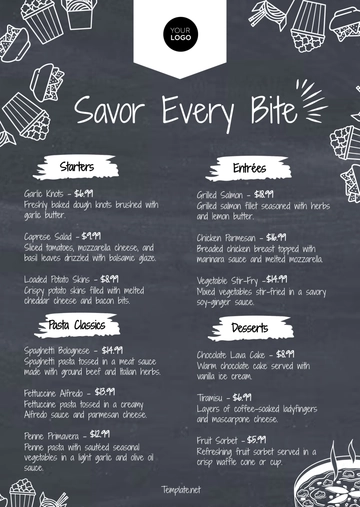 YOUR
LOGO
Savor Every Bite
Starters
Garlic Knots - $6.99
Freshly baked dough knots brushed with
garlic butter.
Caprese Salad - $9.99
Sliced tomatoes, mozzarella cheese, and
basil leaves drizzled with balsamic glaze.
Loaded Potato Skins - $8.99
Crispy potato skins filled with melted
cheddar cheese and bacon bits.
Pasta Classics
Spaghetti Bolognese - $14.99
Spaghetti pasta tossed in a meat sauce
made with ground beef and Italian herbs.
Fettuccine Alfredo - $13.99
Fettuccine pasta tossed in a creamy
Alfredo sauce and parmesan cheese.
Penne Primavera - $12.99
Penne pasta with sautéed seasonal
vegetables in a light garlic and olive oil
sauce.
Entrées
Grilled Salmon - $18.99
Grilled salmon fillet seasoned with herbs
and lemon butter.
Chicken Parmesan - $16.99
Breaded chicken breast topped with
marinara sauce and melted mozzarella.
Vegetable Stir-Fry -$14.99
Mixed vegetables stir-fried in a savory
soy-ginger sauce.
Desserts
Chocolate Lava Cake - $8.99
Warm chocolate cake served with
vanilla ice cream.
Tiramisu - $6.99
Layers of coffee-soaked ladyfingers
and mascarpone cheese.
Fruit Sorbet - $5.99
Refreshing fruit sorbet served in a
crisp waffle cone or cup.
Template.net